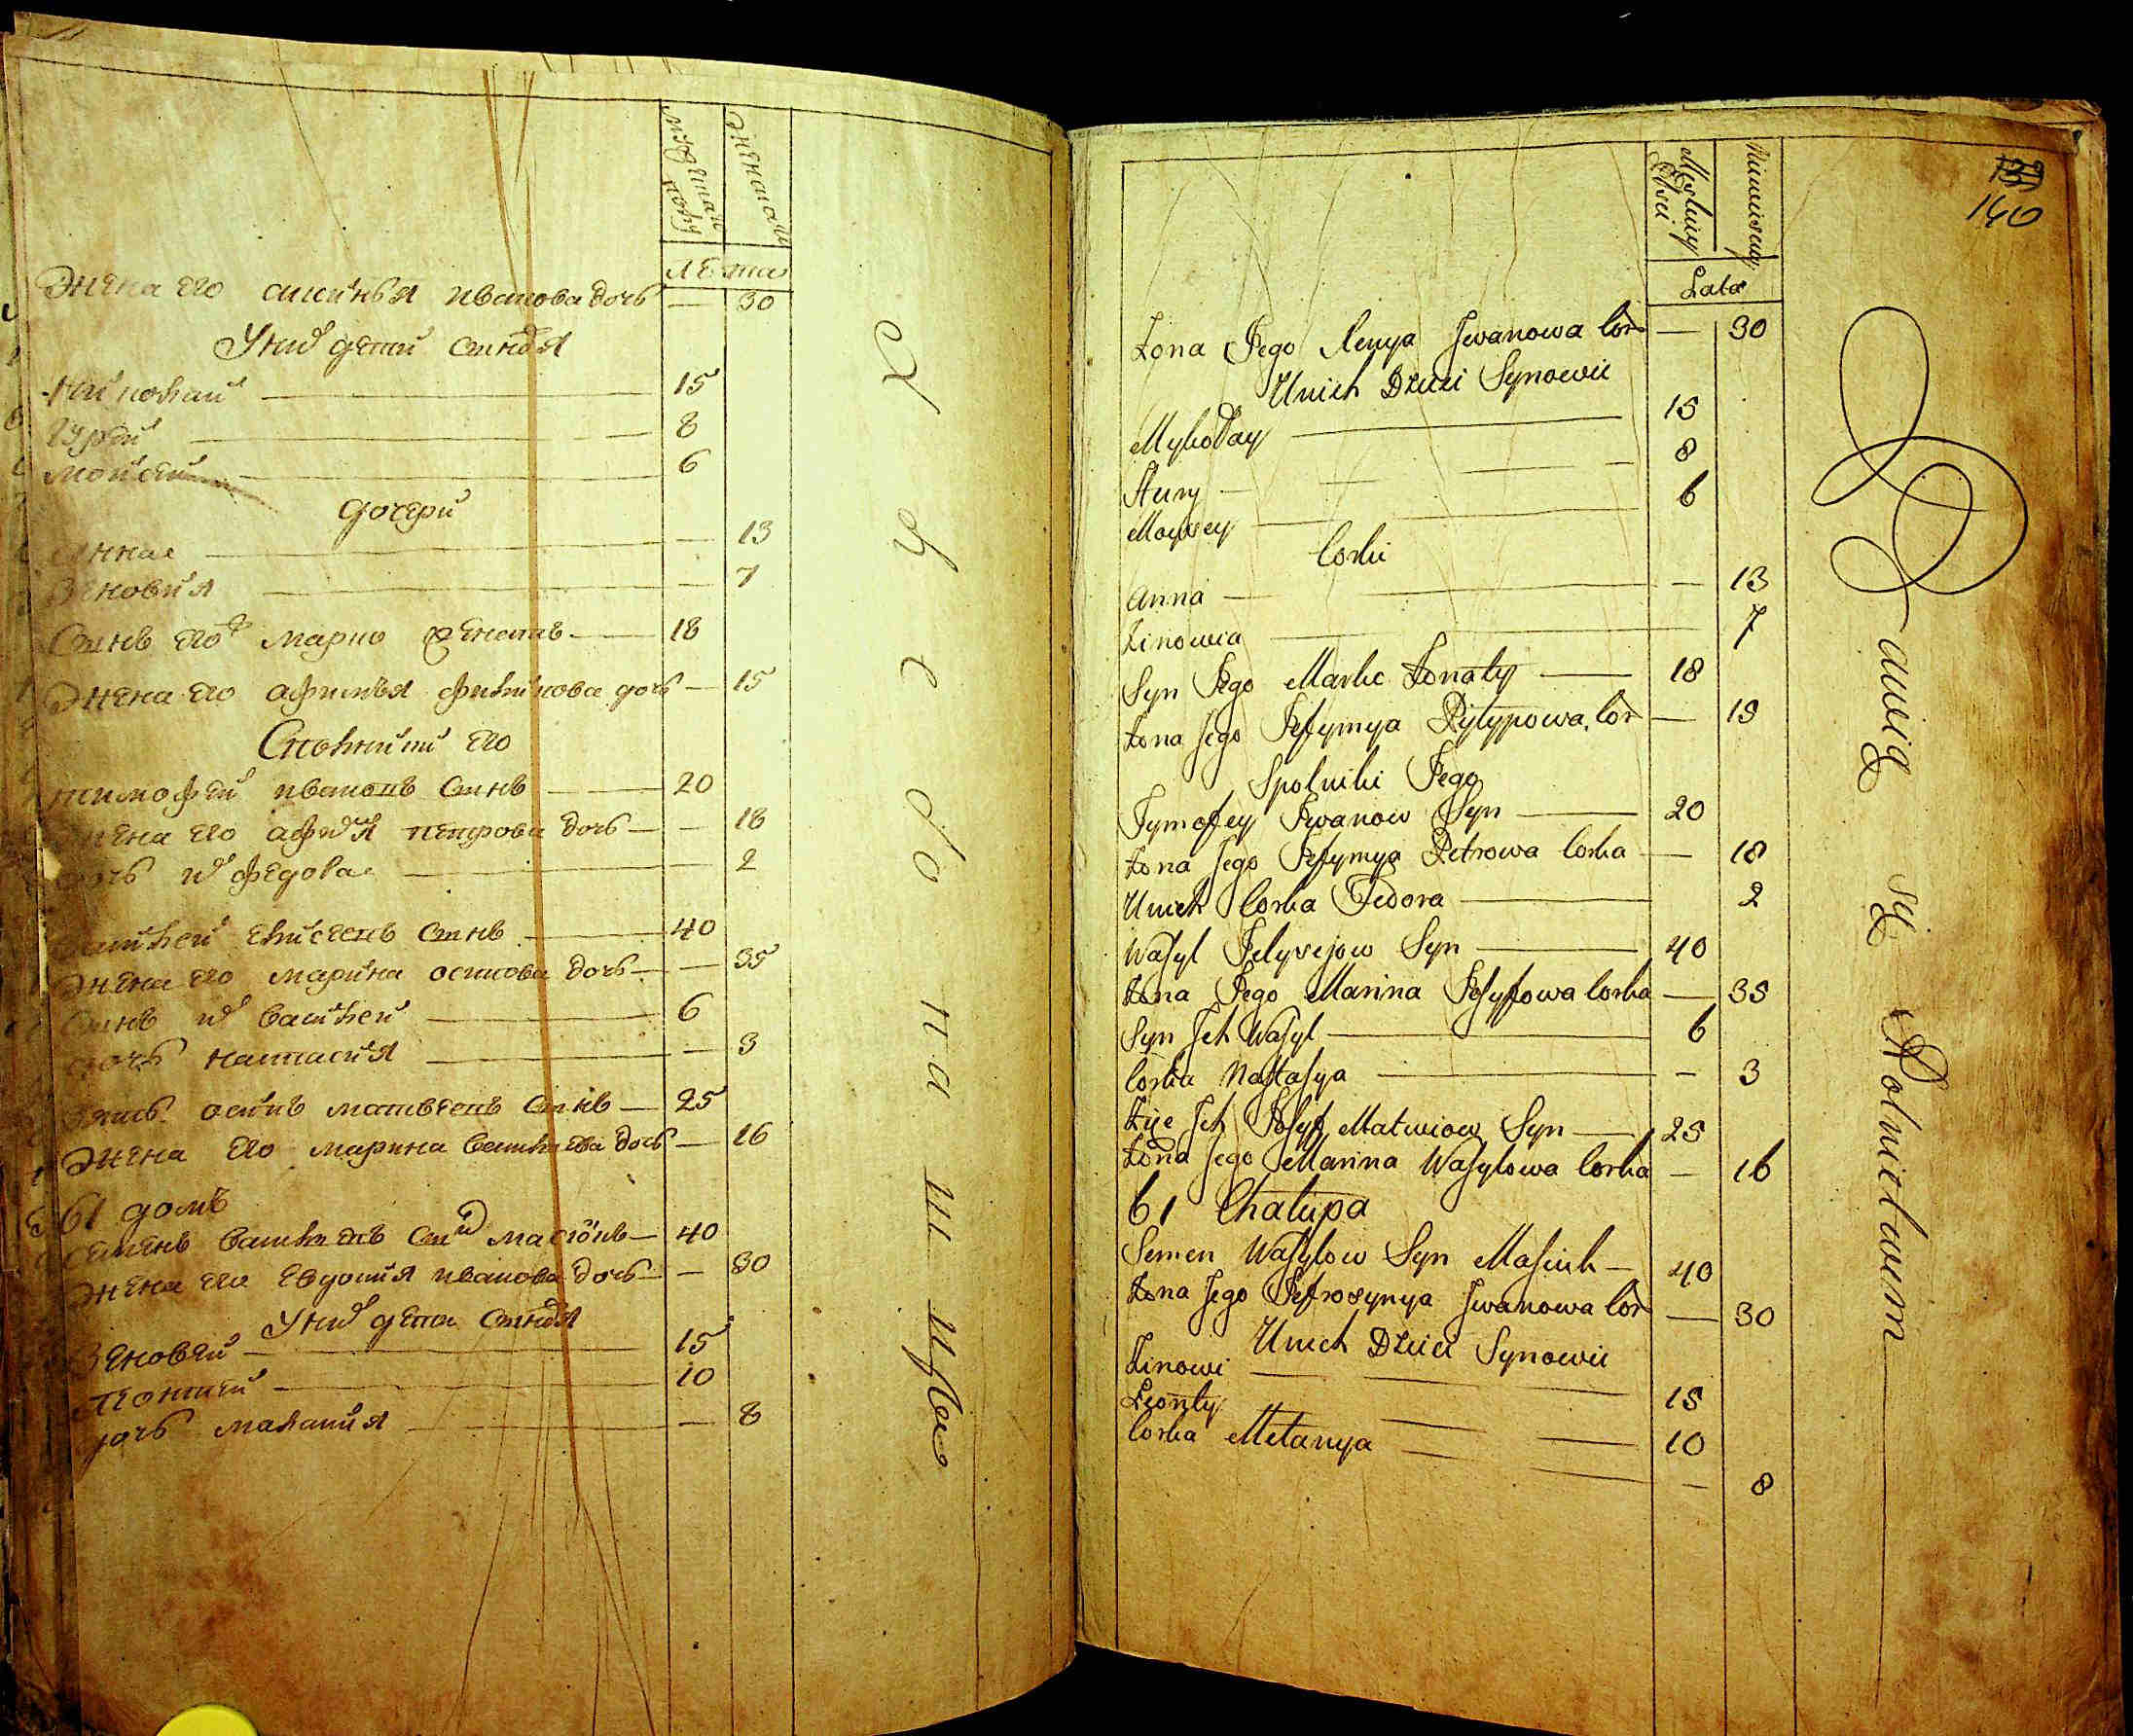 мужеска полу
женска
лета
Жена его аксинья иванова дочь — 30
У них дети синовя
николай — 15
гурей — 8
мойсей — 6
дочери
анна — 13
Зеновия — 7
Синъ его марко — 18
Жена его афимья филипова дочь — 15
Сполники его
тимофей ивановъ синъ — 20
Жена его афимя петрова дочь — 18
дочъ их федора — 2
василей елисеевъ синъ — 40
Жена его марина осипова дочь — 35
Синъ их василей — 6
дочъ настасия — 3
зять осипъ матвеевъ синъ — 25
Жена его марина василева дочь — 16
61 домъ
Семенъ василевъ син масюкъ — 40
Жена его евдокия иванова дочь — 30
У них дети синовя
Зеновей — 15
леонтей — 10
дочъ малания — 8
139
140
Męskiey Płci
Niewieściey
Lata
Żona Jego Xenya Jwanowa Cór — 30
Unich Dzieci Synowie
Mykołay — 15
Hury — 8
Moysey — 6
Corki
Anna — 13
Zinowia — 7
Syn Jego Marko Żonaty — 18
Żona Jego Jefymya Pylypowa Cór — 15
Spolniki Jego
Tymofey Jwanow Syn — 20
Żona Jego Jefymya Petrowa Corka — 18
Unich Corka Fedora — 2
Wasyl Jelysejow Syn — 40
Żona Jego Marina Josyfowa Corka — 35
Syn Jch Wasyl — 6
Corka Nastasya — 3
Zięć Jch Josyf Matwiow Syn — 25
Żona Jego Marina Wasylowa Corka — 16
61 Chałupa
Semen Wasylow Syn Masiuk — 40
Żona Jego Jefrosynya Jwanowa Cór — 30
Unich Dzieci Synowie
Zinowi — 15
Leonty — 10
Corka Mełanya — 8